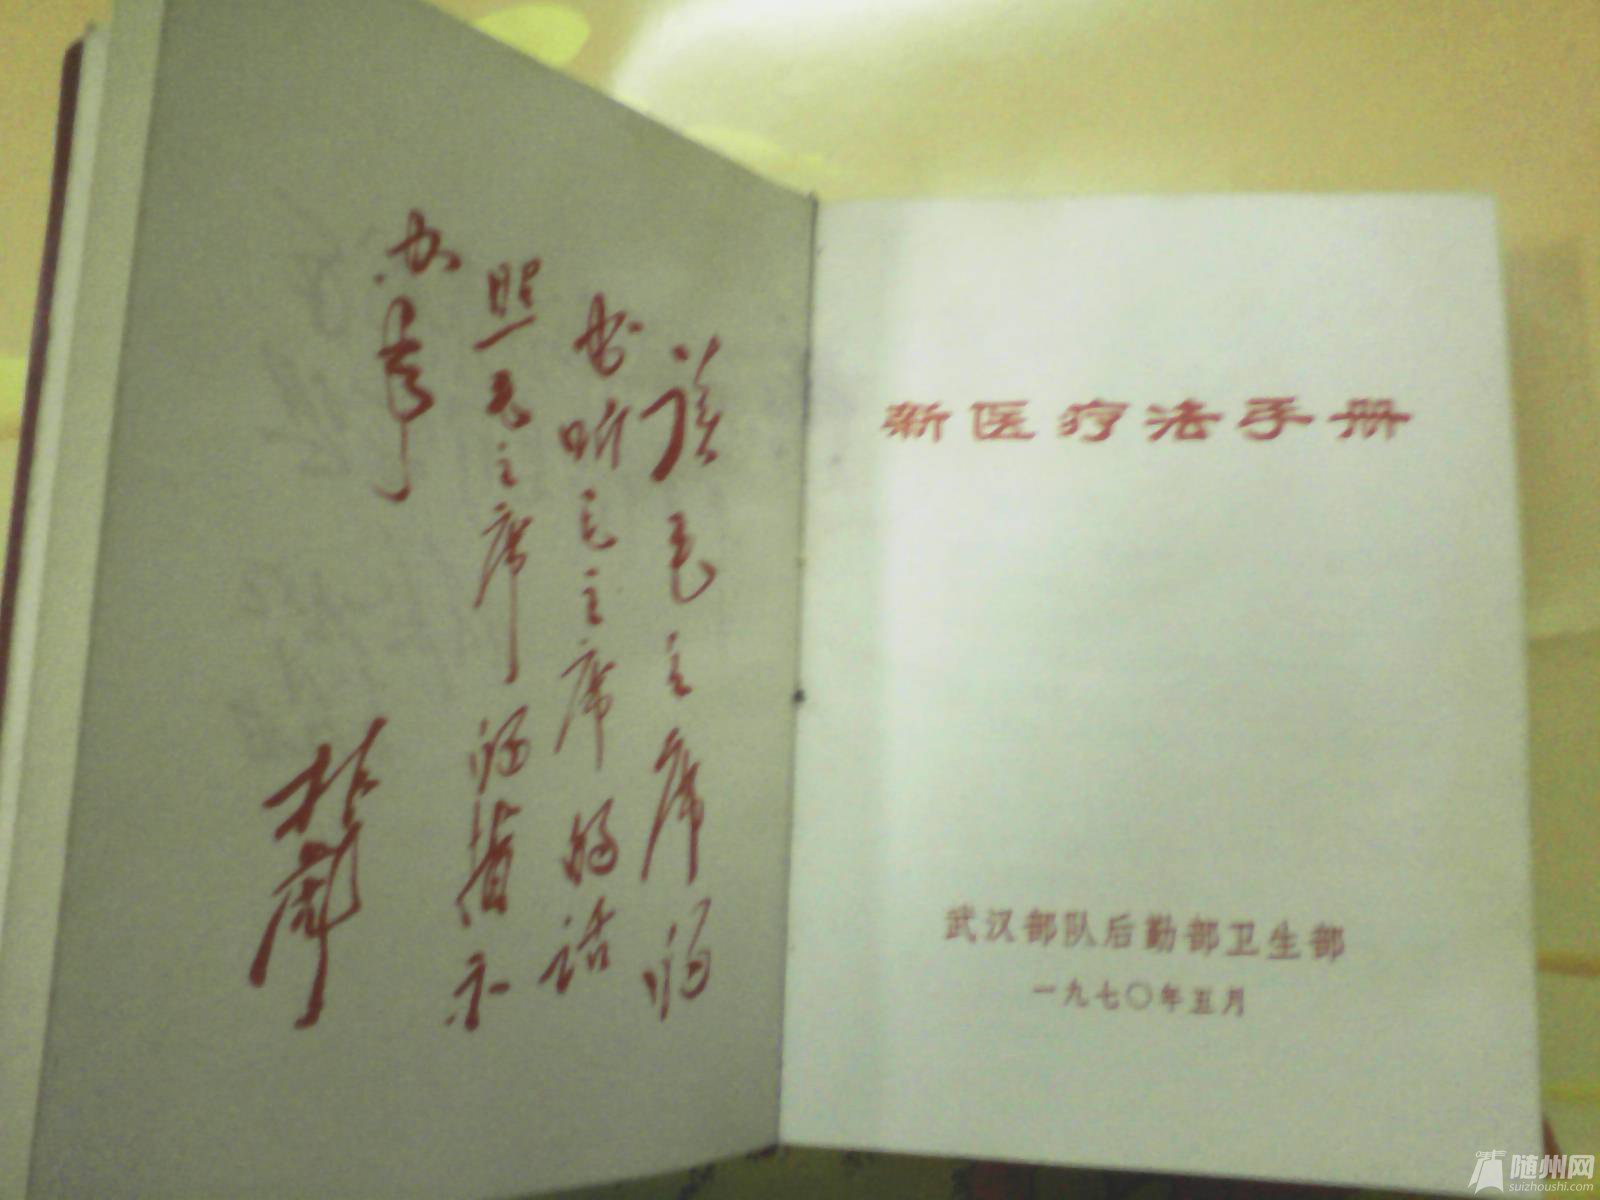 读毛主席的
书听毛主席的话
照毛主席的指示
办事
林彪
新医疗法手册
武汉部队后勤部卫生部
一九七〇年五月
随州网
suizhoushi.com